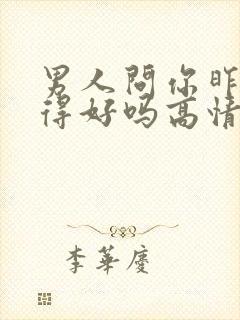 男人問你昨
得好吗高情
李華慶